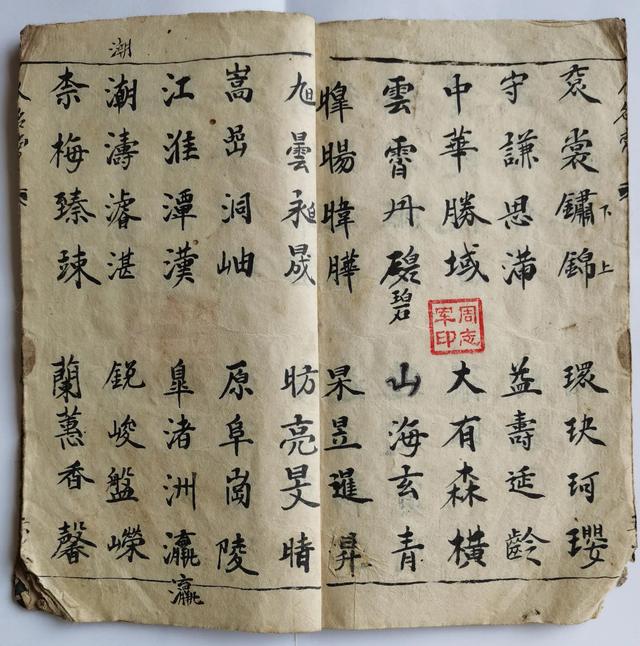 衮裳鏽錦環玦珂瓔
下上
守謙思滿益壽延齡
中華勝域大有森橫
周志军印
雲霄丹碧山海玄青
碧
暘暐曄杲昱暹昇
旭曇昶晟昉亮旻晴
嵩洞岫原阜崗陵
江淮潭漢皐渚洲瀛
瀛
潮
潮濤濬湛鋭峻盤嶸
柰梅臻竦蘭蕙香馨